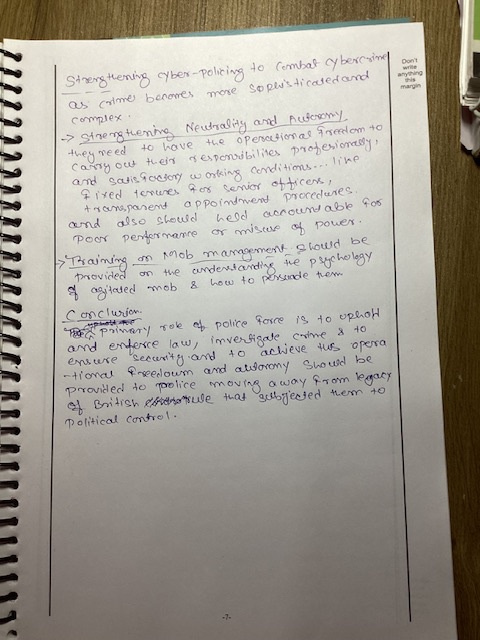 Strengthening cyber-policing to combat cybercrime
as crime becomes more sophisticated and
complex.
→ Strengthening Neutrality and Autonomy
they need to have the operational freedom to
carry out their responsibilites profesionally,
and satisfactory working conditions... like
fixed tenures for senior officers,
transparent appointment procedures.
and also should held accountable for
poor performance or misuse of power.
→ Training on Mob management should be
provided on the understanding the psychology
of agitated mob & how to persuade them
Conclusion
primary role of police force is to uphold
and enforce law, investigate crime & to
ensure security and to achieve this opera
-tional freedom and autonomy should be
provided to police moving away from legacy
of British rule that subjected them to
political control.
Don't
write
anything
this
margin
-7-